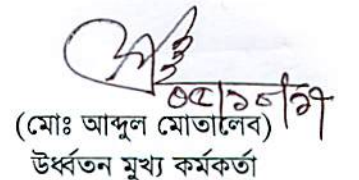 (মোঃ আব্দুল মোতালেব)
উর্ধ্বতন মুখ্য কর্মকর্তা